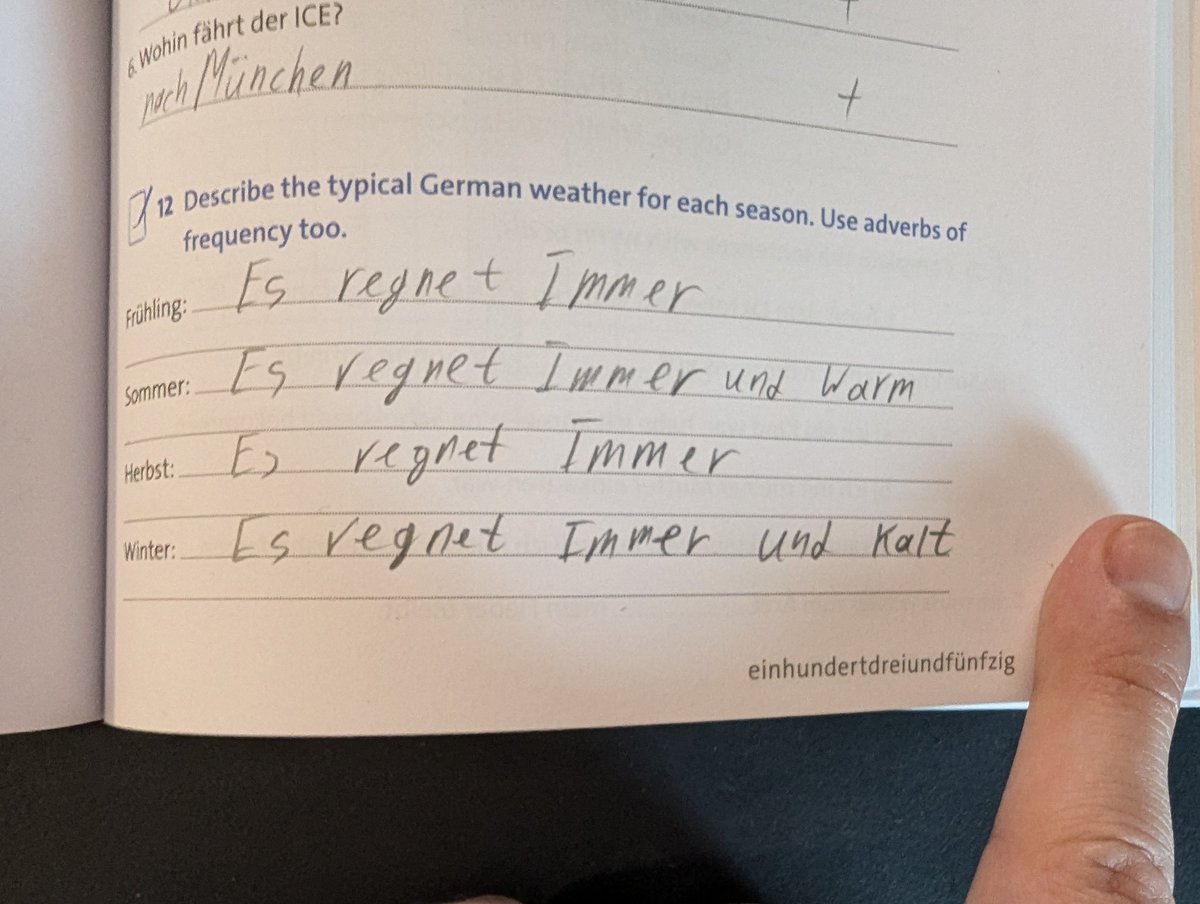 6. Wohin fährt der ICE?
nach München +
12 Describe the typical German weather for each season. Use adverbs of
frequency too.
Frühling: Es regnet Immer
Sommer: Es regnet Immer und Warm
Herbst: Es regnet Immer
Winter: Es regnet Immer und Kalt
einhundertdreiundfünfzig